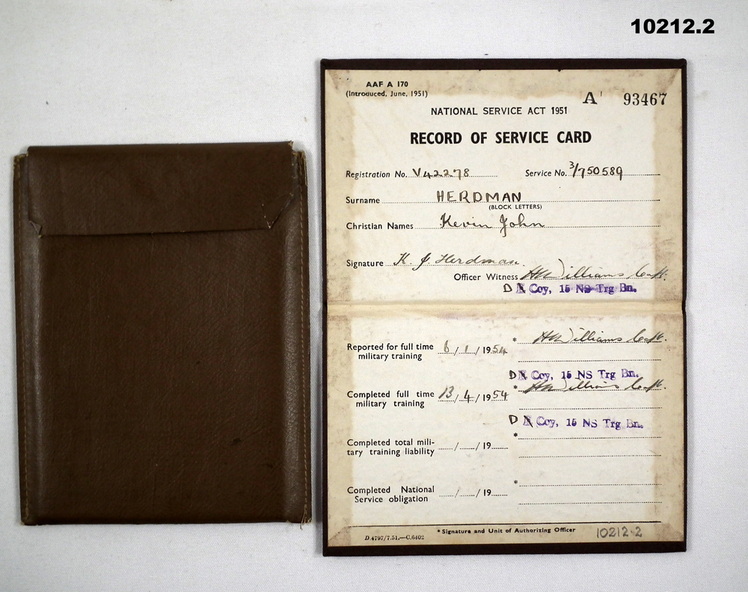 10212.2
AAF A 170
(Introduced, June, 1951)
A 93467
NATIONAL SERVICE ACT 1951
RECORD OF SERVICE CARD
Registration No. V42278 Service No. 3/750589
Surname HERDMAN
(BLOCK LETTERS)
Christian Names Kevin John
Signature K. J. Herdman.
Officer Witness Williams Capt.
D Coy, 15 NS Trg Bn.
Reported for full time military training 6/1/1954 * Williams Capt.
D Coy, 15 NS Trg Bn.
Completed full time military training 13/4/1954 * Williams Capt.
D Coy, 15 NS Trg Bn.
Completed total mili-
tary training liability ..../..../19.... *
Completed National
Service obligation ..../..../19.... *
*Signature and Unit of Authorizing Officer
D.4797/7.51.—C.6402
10212.2